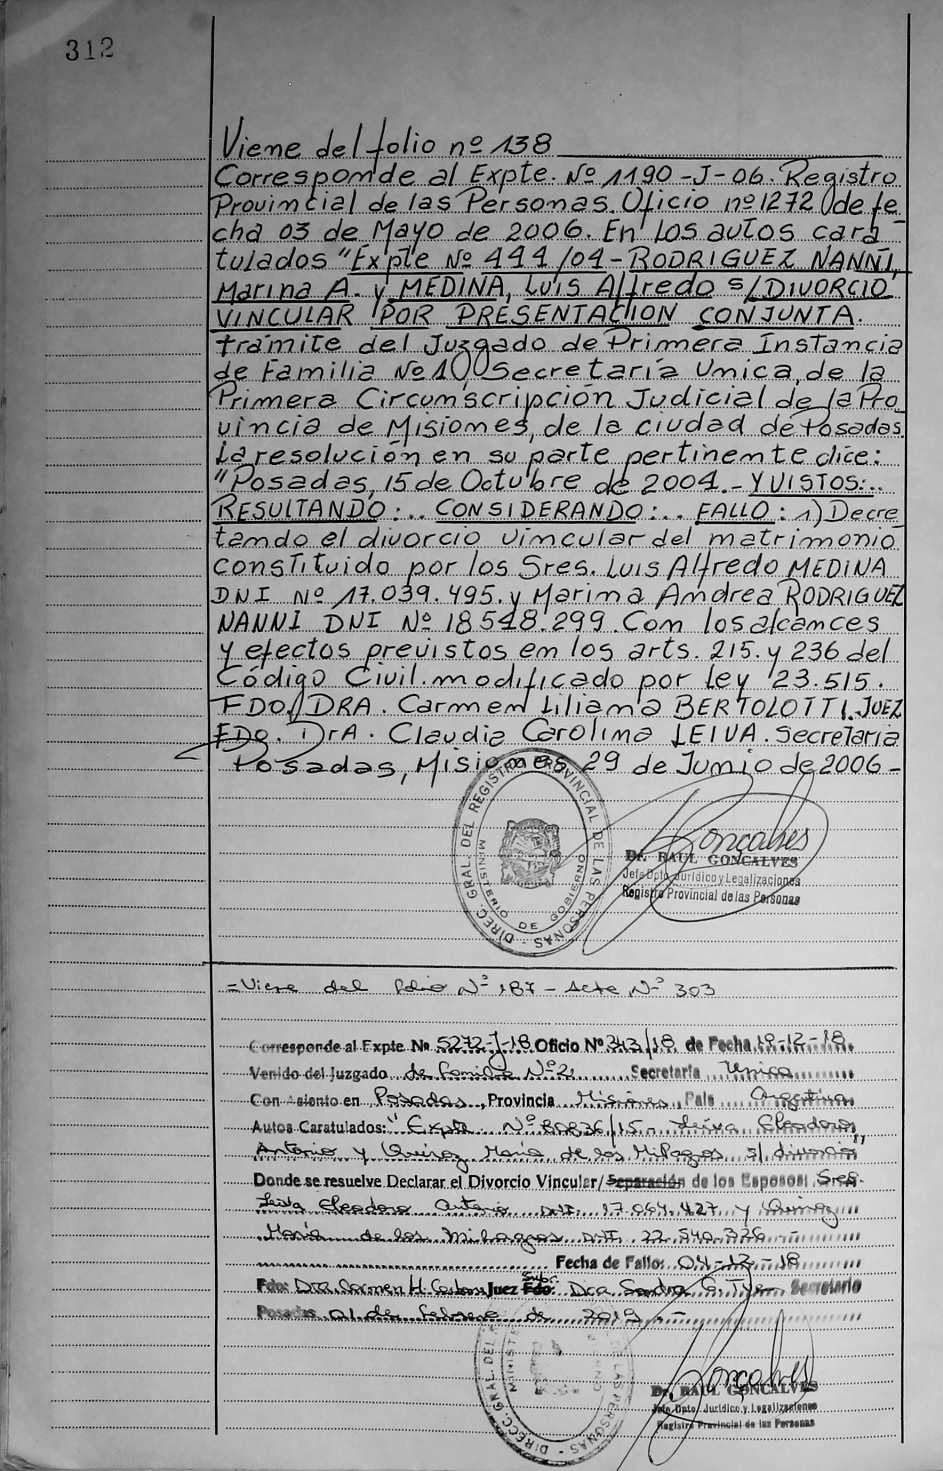 312
Viene del folio nº 138
Corresponde al Expte. Nº 1190-J-06. Registro
Provincial de las Personas. Oficio nº 1272 de fe
cha 03 de Mayo de 2006. En los autos cara
tulados "Expte Nº 444/04-RODRIGUEZ NANNI,
Marina A. y MEDINA, Luis Alfredo s/DIVORCIO
VINCULAR POR PRESENTACION CONJUNTA.
trámite del Juzgado de Primera Instancia
de Familia Nº 1, Secretaría Unica, de la
Primera Circunscripción Judicial de la Pro
vincia de Misiones, de la ciudad de Posadas.
La resolución en su parte pertinente dice:
"Posadas, 15 de Octubre de 2004.- Y VISTOS:..
RESULTANDO:.. CONSIDERANDO:.. FALLO: 1) Decre
tando el divorcio vincular del matrimonio
constituido por los Sres. Luis Alfredo MEDINA
DNI Nº 17.039.495. y Marina Andrea RODRIGUEZ
NANNI DNI Nº 18548.299. Con los alcances
y efectos previstos en los arts. 215. y 236 del
Código Civil. modificado por Ley 23.515.
FDO. DRA. Carmen Liliana BERTOLOTTI. JUEZ
FDO. DrA. Claudia Carolina LEIVA. Secretaria
Posadas, Misiones, 29 de Junio de 2006-
DIREC. GRAL. DEL REGISTRO PROVINCIAL DE LAS PERSONAS
MINISTERIO DE GOBIERNO
Goncalves
Dr. RAUL GONCALVES
Jefe Dpto. Jurídico y Legalizaciones
Registro Provincial de las Personas
=Viene del folio Nº 187 - Acta Nº 303
Corresponde al Expte Nº 5272-J-18 Oficio Nº 343/18 de Fecha 19-12-18.
Venido del Juzgado de Familia Nº 2 Secretaria Unica
Con Asiento en Posadas, Provincia Misiones, Pais Argentina
Autos Caratulados: "Expte Nº 80836/15 - Leiva Cleodoro
Antonio y Quiroz María de los Milagros s/ divorcio"
Donde se resuelve Declarar el Divorcio Vincular/Separación de los Esposos: Sres.
Leiva Cleodoro Antonio DNI. 17.064.427 y Quiroz
María de los Milagros DNI. 22.540.336
Fecha de Fallo: 04-12-18
Fdo: Dra. Carmen H. Juez Subr. Fdo: Dra Sandra Secretario
Posadas 01 de febrero de 2019
DE LAS PERSONAS - DIREC. GRAL. DEL
Goncalves
Dr. RAUL GONCALVES
Jefe Dpto. Jurídico y Legalizaciones
Registro Provincial de las Personas